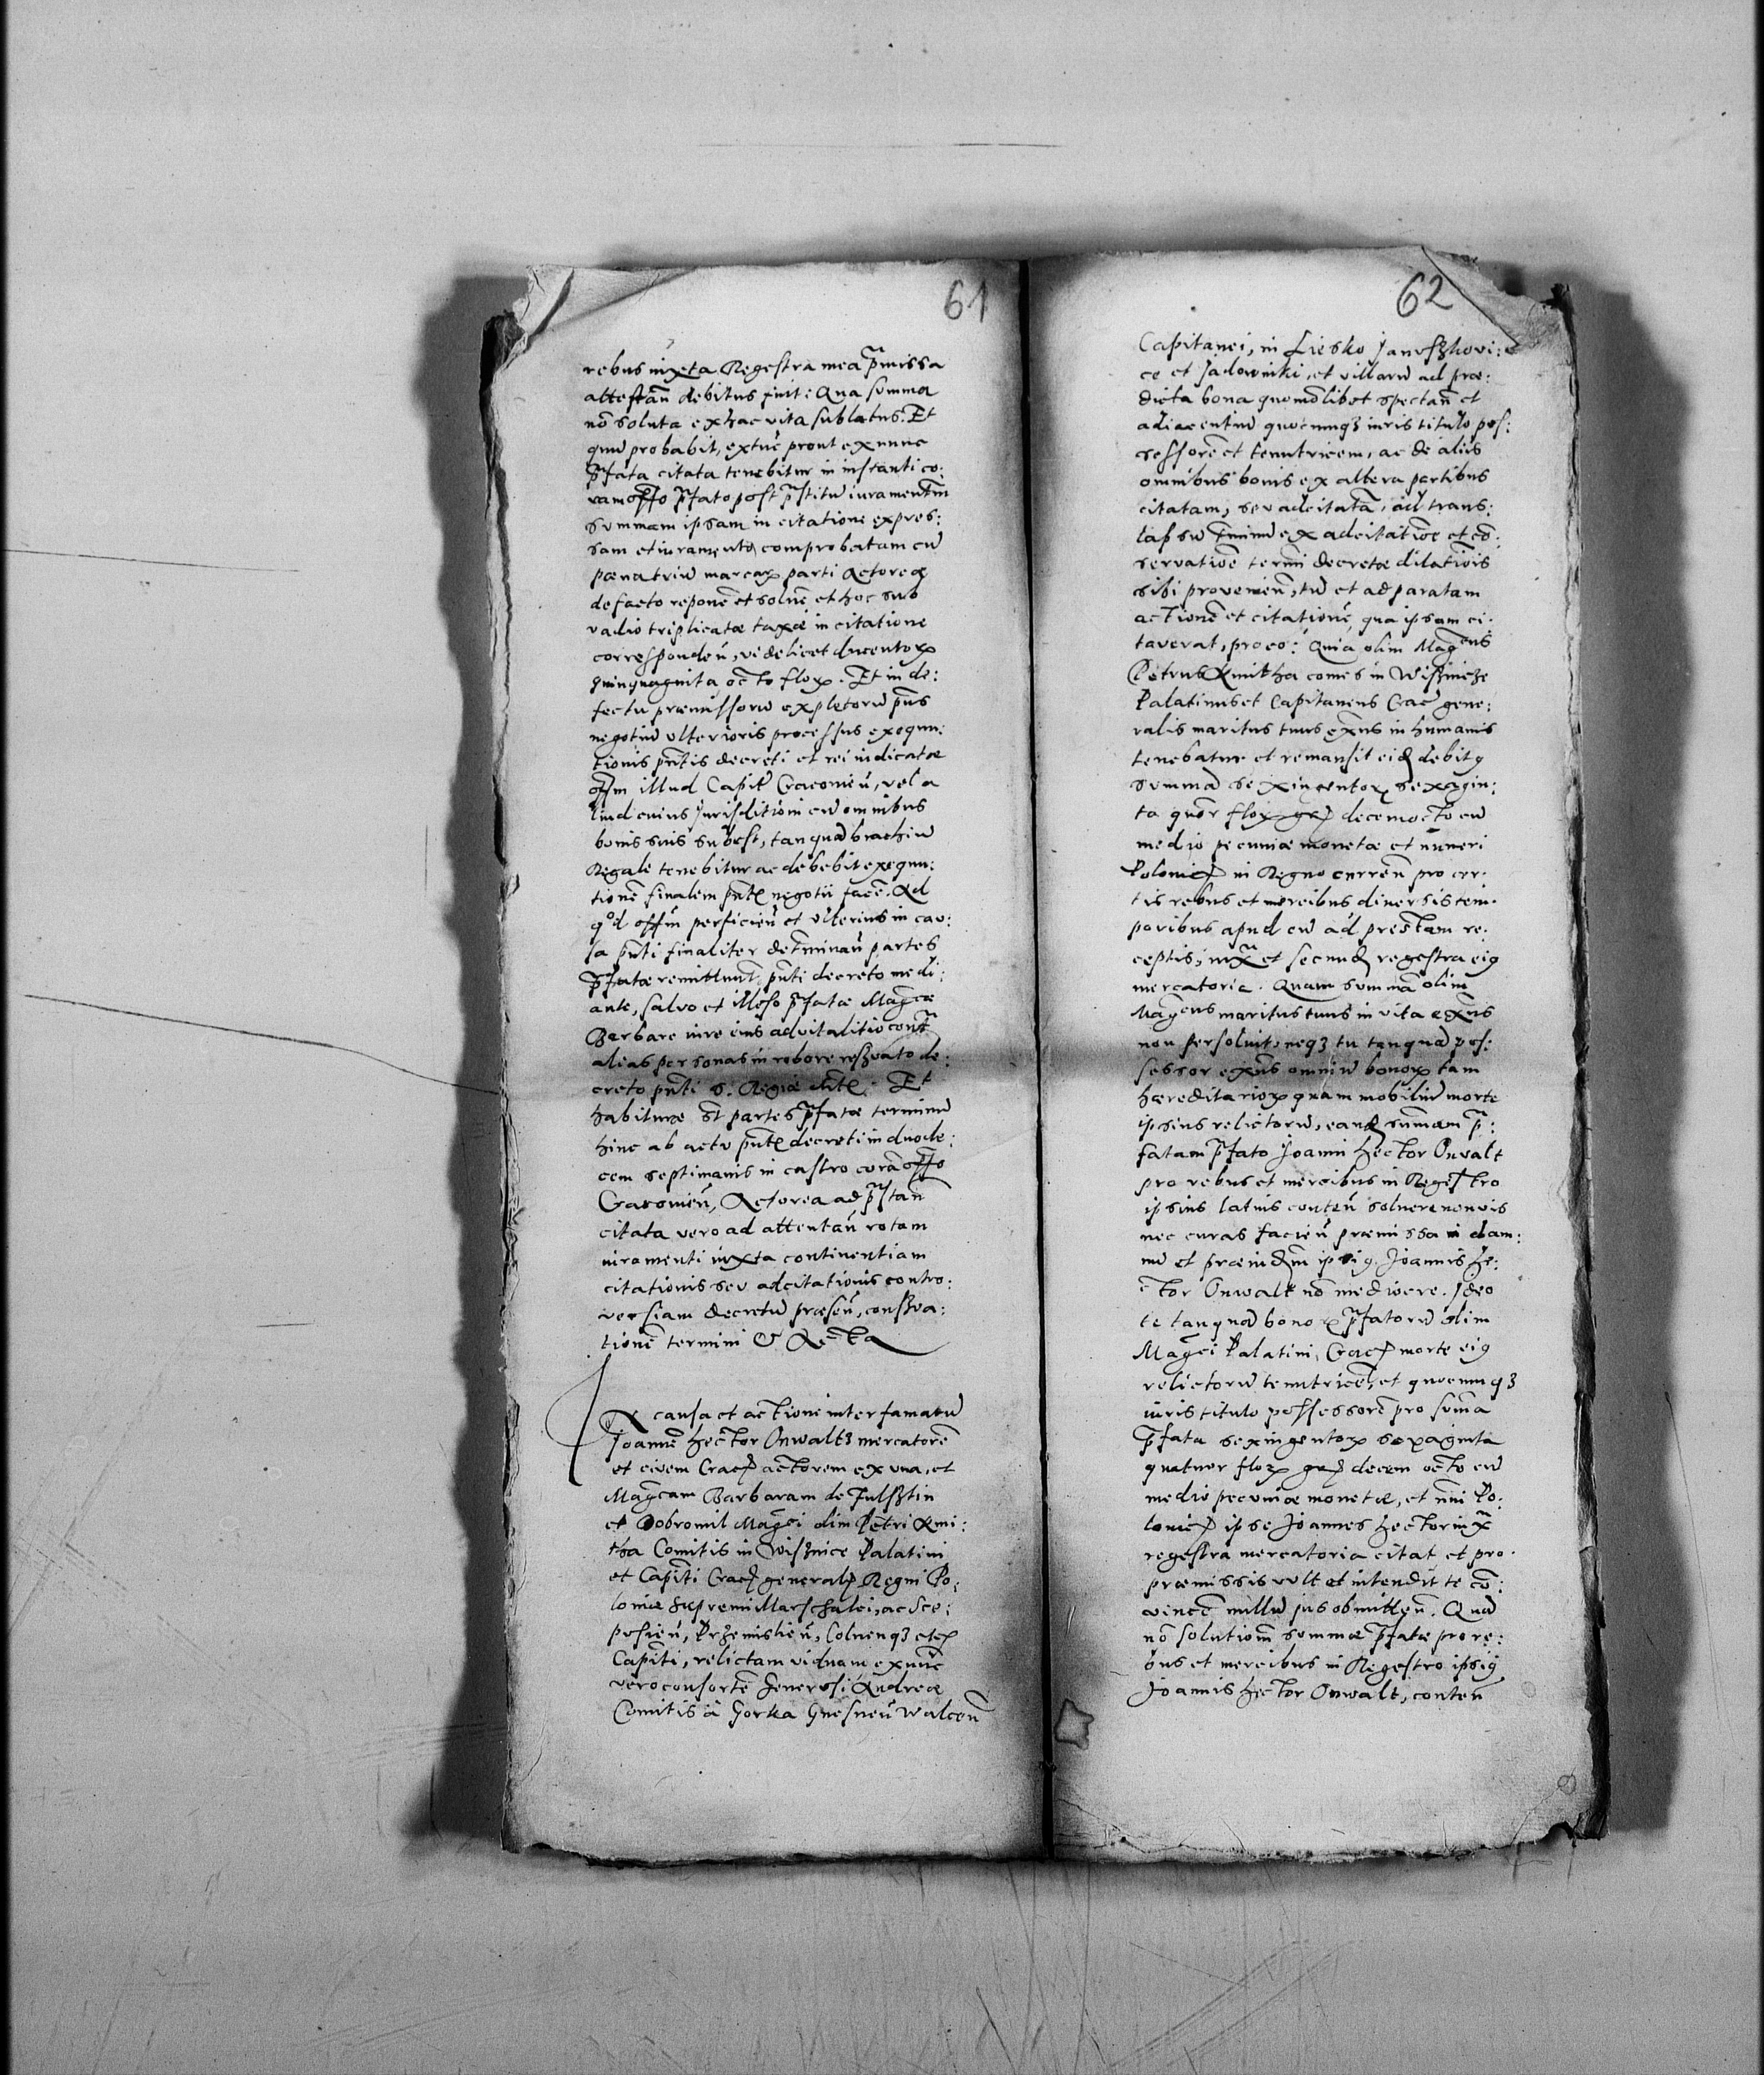 61
rebus iuxta Regestra mea p̃missa
attestañ debitus fuit: Qua summa
nõ soluta ex hac vita sublatus. Et
quũ probabit, extũc prout ex nunc
p̃fata citata tenebitur in instanti co:
ram offo p̃fato post p̃stitũ iuramentm̃
summam ipsam in citatione expres:
sam et iuramento comprobatam cũ
pœna triũ marcaꝝ parti Actoreæ
de facto reponẽ et soluẽ et hoc sub
vadio triplicatæ taxæ in citatione
correspondeñ, videlicet ducentoꝝ
quinquaginta octo floꝝ. Et in de:
fectu præmissorũ expletorũ p̃ns
negotiũ vlterioris processus exequu:
tionis p̃ntis decreti et rei iudicatæ
offm illud Capitᷓ Cracovieñ, vel a
liud cuius Jurisditioni cũ omnibus
bonis suis subest, tanquã brachiũ
Regale tenebitur ac debebit exequu:
tionẽ finalem p̃ntꝭ negotii facẽ. Ad
qd̃ offm̃ perficieñ et vlterius in cau:
sa p̃nti finaliter det̃minañ partes
p̃fatæ remittunt̃ p̃nti decreto medi:
ante, salvo et illeso p̃fatæ Mag̃cæ
Barbare iure eius advitalitio cont̃
alias personas in robore reẞvato de:
creto p̃nti S. Regiæ Mtꝭ. Et
habituræ st̃ partes p̃fatæ terminũ
hinc ab actu p̃ntꝭ decreti in duode:
cem septimanis in castro corã offo
Cracovieñ, Actorea ad p̃stañ
citata vero ad attentañ rotam
iuramenti iuxta continentiam
citationis seu adcitationis contro:
versiam decretũ præseñ, conẞva:
tionẽ termini & Acta
In causa et actione inter famatũ
Joannẽ Hector Onwaltȝ mercatorẽ
et civem Cracꝭ actorem ex vna, et
Mag̃cam Barbaram de Fulsztin
et Dobromil Mag̃ci olim Petri Kmi:
tha Comitis in Wisznice Palatini
et Capit̃i Cracꝭ generalꝭ Regni Po:
loniæ Supremi Marschalci, ac Sce:
pusieñ, Przemislieñ, Colnenqȝ etcꝭ
Capit̃i, relictam viduam ex nũc
vero consortẽ Generosi Andreæ
Comitis à Gorka Gnesneñ Walceñ
62
Capitanei, in Liesko Januszkovi:
ce et Sadowniki, et villarũ ad præ:
dicta bona quomõlibet spectañ et
adiacentiũ quocunqȝ iuris titulo pos:
sessorẽ et tenutricem, ac de aliis
omnibus bonis ex altera partibus
citatam, seu adcitatã, ad trans:
lapsũ t̃minũ ex adcitatiõe et cõ:
servatiõe termini decretæ dilatiõis
sibi provenieñ, tũ et ad paratam
actionẽ et citationẽ, qua ipsam ci:
taverat, pro eo: Quia olim Mag̃cus
Petrus Kmitha comes in Wisznicze
Palatinus et Capitaneus Cracꝭ gene:
ralis maritus tuus ex̃ns in humanis
tenebatur et remansit eidꝭ debitꝰ
summã sexingentoꝝ sexagin:
ta quõr floꝝ grꝭ decemocto cũ
medio pecuniæ monetæ et numeri
Polonicꝭ in Regno currẽn pro cer:
tis rebus et mercibus diversis tem:
poribus apud eũ ad præstam re:
ceptis, iuxᷓ et secundꝭ regestra eiꝰ
mercatoria. Quam summã olim
Mag̃cus maritus tuus in vita ex̃ns
non persoluit, neqȝ tu tanquã pos:
sessor ex̃ns omniũ bonoꝝ tam
hæreditarioꝝ quam mobiliũ morte
ipsius relictorũ, eandꝭ summam p̃:
fatam p̃fato Joanni Hector Onvalt
pro rebus et mercibus in Regestro
ipsius latius conteñ soluere non vis
nec curas facieñ præmissa in dam:
nũ et præiudm̃ ipsiꝰ Joannis He:
ctor Onwalt nõ mediocre. Ideo
te tanquã bonoꝝ p̃fatorũ olim
Mag̃ci Palatini Cracꝭ morte eiꝰ
relictorũ tenutricẽ, et quocunqȝ
iuris titulo possessorẽ pro sum̃a
p̃fata sexingentoꝝ sexaginta
quatuor floꝝ grꝭ decem octo cũ
medio pecuniæ monetæ, et nu͂i Po:
lonicꝭ ipse Joannes Hector iuxᷓ
regestra mercatoria citat et pro
præmissis vult et intendit te cõ:
vincẽ nullũ jus obmitteñ. Quã
nõ solutionem summæ p̃fatæ pro re:
bus et mercibus in Regestro ipsiꝰ
Joannis Hector Onwalt, conteñ